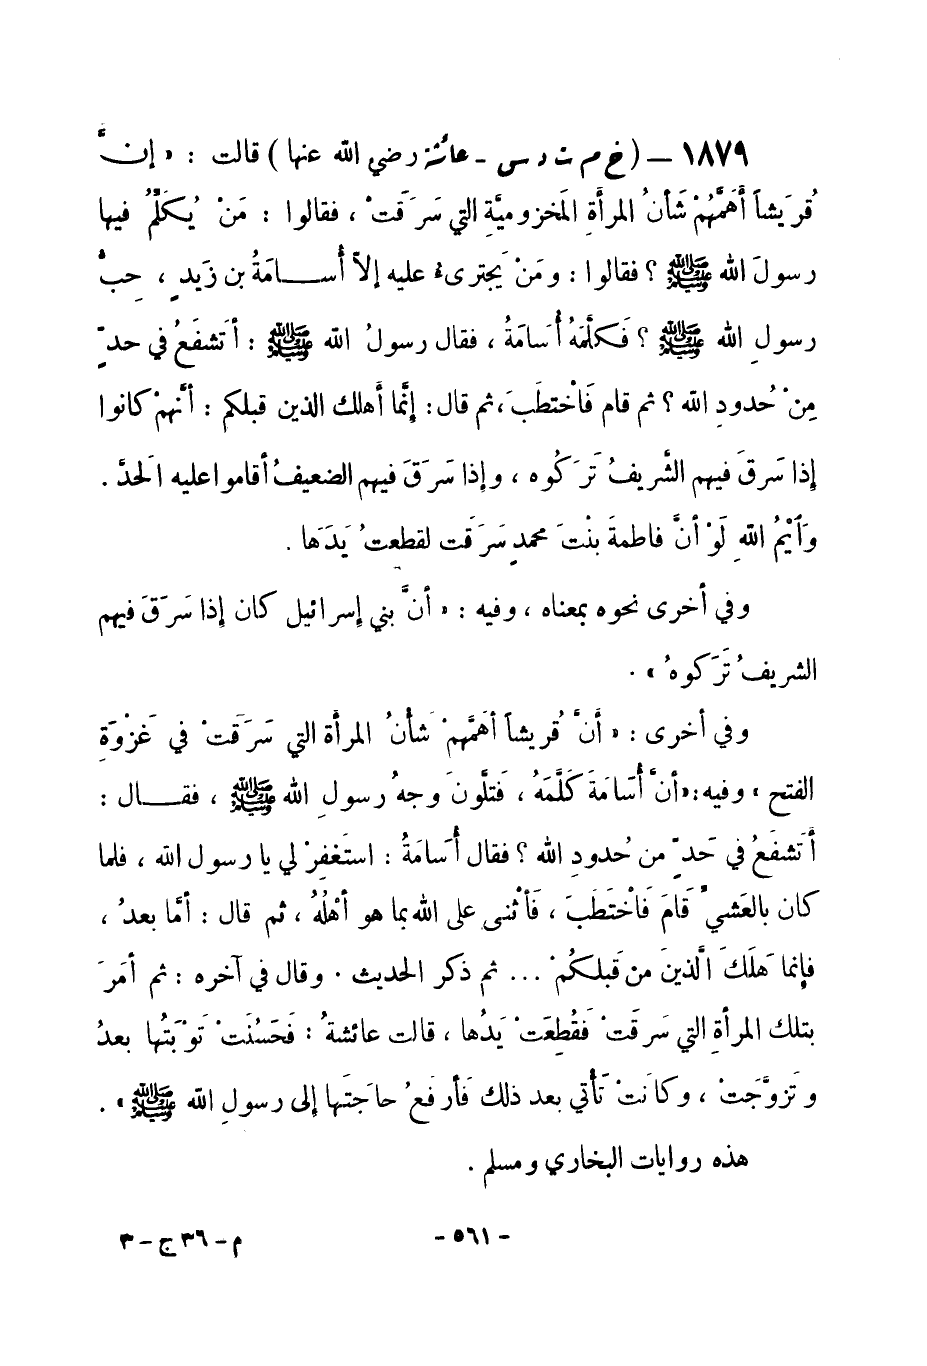 ١٨٧٩ – ( خ م ت د س - عائشة رضي الله عنها ) قالت : « إنَّ
قُرَيشاً أَهَمَّهُمْ شَأنُ المرأَةِ المَخزوميَّةِ التي سَرَقَتْ ، فقالوا : مَنْ يُكَلِّمُ فيها
رسولَ الله ﷺ ؟ فقالوا : ومَنْ يَجترىءُ عليه إلا أُســامَةُ بن زَيدٍ ، حِبُّ
رسولِ الله ﷺ ؟ فَكلَّمَهُ أُسَامَةُ ، فقال رسولُ الله ﷺ : أتَشفَعُ في حدٍّ
مِنْ حُدودِ الله ؟ ثم قام فَاخْتطَبَ ، ثم قال : إنَّما أهلك الذين قبلكم : أنَّهمْ كانوا
إذا سَرقَ فيهم الشَّريفُ تَرَكُوه ، وإذا سَرَقَ فيهم الضعيفُ أقاموا عليه الَحدَّ .
وَٱيْمُ اللهِ لَوْ أنَّ فاطمةَ بنْتَ محمدٍ سَرَقَت لقطعتُ يَدَهَا .
وفي أخرى نحوه بمعناه ، وفيه : « أنَّ بني إسرائيل كان إذا سَرَقَ فيهم
الشريفُ تَرَكوهُ » .
وفي أخرى : « أنَّ قُريشاً أهَمَّهمْ شَأنُ المرأة التي سَرَقَتْ في غَزْوَةِ
الفتح » وفيه : « أنَّ أُسَامَةَ كَلَّمَهُ ، فَتلَّونَ وجهُ رسولِ الله ﷺ ، فقــال :
أتَشفَعُ في حَدٍّ من حُدودِ الله ؟ فقال أُسَامةُ : استَغفِرْ لي يا رسول الله ، فلما
كان بالعَشيِّ قَامَ فَاخْتَطَبَ ، فَأثْنى على الله بما هو أهْلُهُ ، ثم قال : أمَّا بعدُ ،
فإنما هَلَكَ الَّذينَ من قَبلكُمْ ... ثم ذكر الحديث . وقال في آخره : ثم أمَرَ
بتلك المرأةِ التي سَرقَتْ فَقُطِعَتْ يَدُها ، قالت عائشةُ : فَحَسُنَتْ تَوْبَتُها بعدُ
وتَزوَّجَتْ ، وكَانَتْ تَأتي بعد ذلك فَأرفَعُ حاجَتَها إلى رسولِ الله ﷺ » .
هذه روايات البخاري ومسلم .
- ٥٦١ -
م – ٣٦ ج – ٣